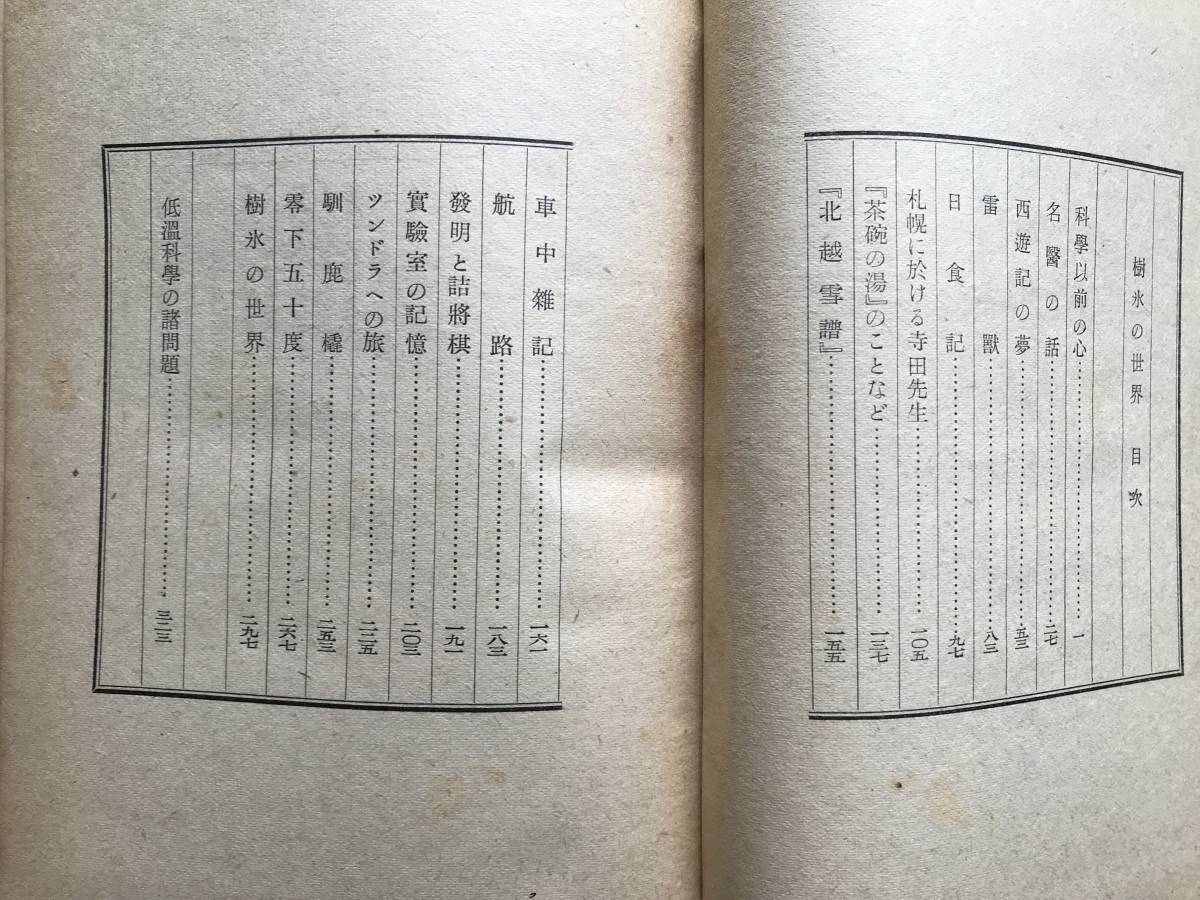 樹氷の世界 目次
科學以前の心…………………………一
名醫の話…………………………二七
西遊記の夢…………………………五三
雷獸…………………………八三
日食記…………………………九七
札幌に於ける寺田先生…………………………一〇五
『茶碗の湯』のことなど…………………………一三七
『北越雪譜』…………………………一五五
車中雜記…………………………一六一
航路…………………………一八三
發明と詰將棋…………………………一九一
實驗室の記憶…………………………二〇三
ツンドラへの旅…………………………二二五
馴鹿橇…………………………二五三
零下五十度…………………………二六七
樹氷の世界…………………………二九七
低溫科學の諸問題…………………………三二三